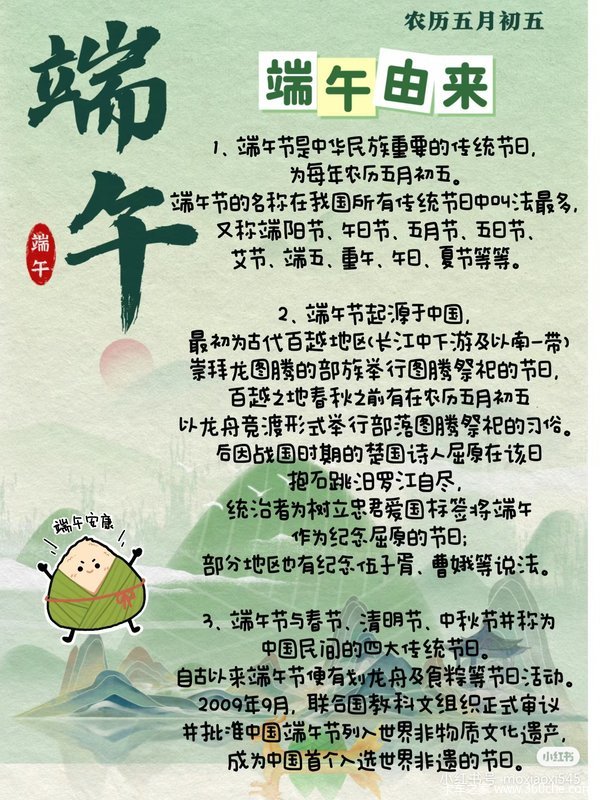 农历五月初五
端午
端午
端午由来
1、端午节是中华民族重要的传统节日,
为每年农历五月初五。
端午节的名称在我国所有传统节日中叫法最多,
又称端阳节、午日节、五月节、五日节、
艾节、端五、重午、午日、夏节等等。
2、端午节起源于中国,
最初为古代百越地区(长江中下游及以南一带)
崇拜龙图腾的部族举行图腾祭祀的节日,
百越之地春秋之前有在农历五月初五
以龙舟竞渡形式举行部落图腾祭祀的习俗。
后因战国时期的楚国诗人屈原在该日
抱石跳汨罗江自尽,
统治者为树立忠君爱国标签将端午
作为纪念屈原的节日;
部分地区也有纪念伍子胥、曹娥等说法。
端午安康
3、端午节与春节、清明节、中秋节并称为
中国民间的四大传统节日。
自古以来端午节便有划龙舟及食粽等节日活动。
2009年9月,联合国教科文组织正式审议
并批准中国端午节列入世界非物质文化遗产,
成为中国首个入选世界非遗的节日。
小红书
小红书号